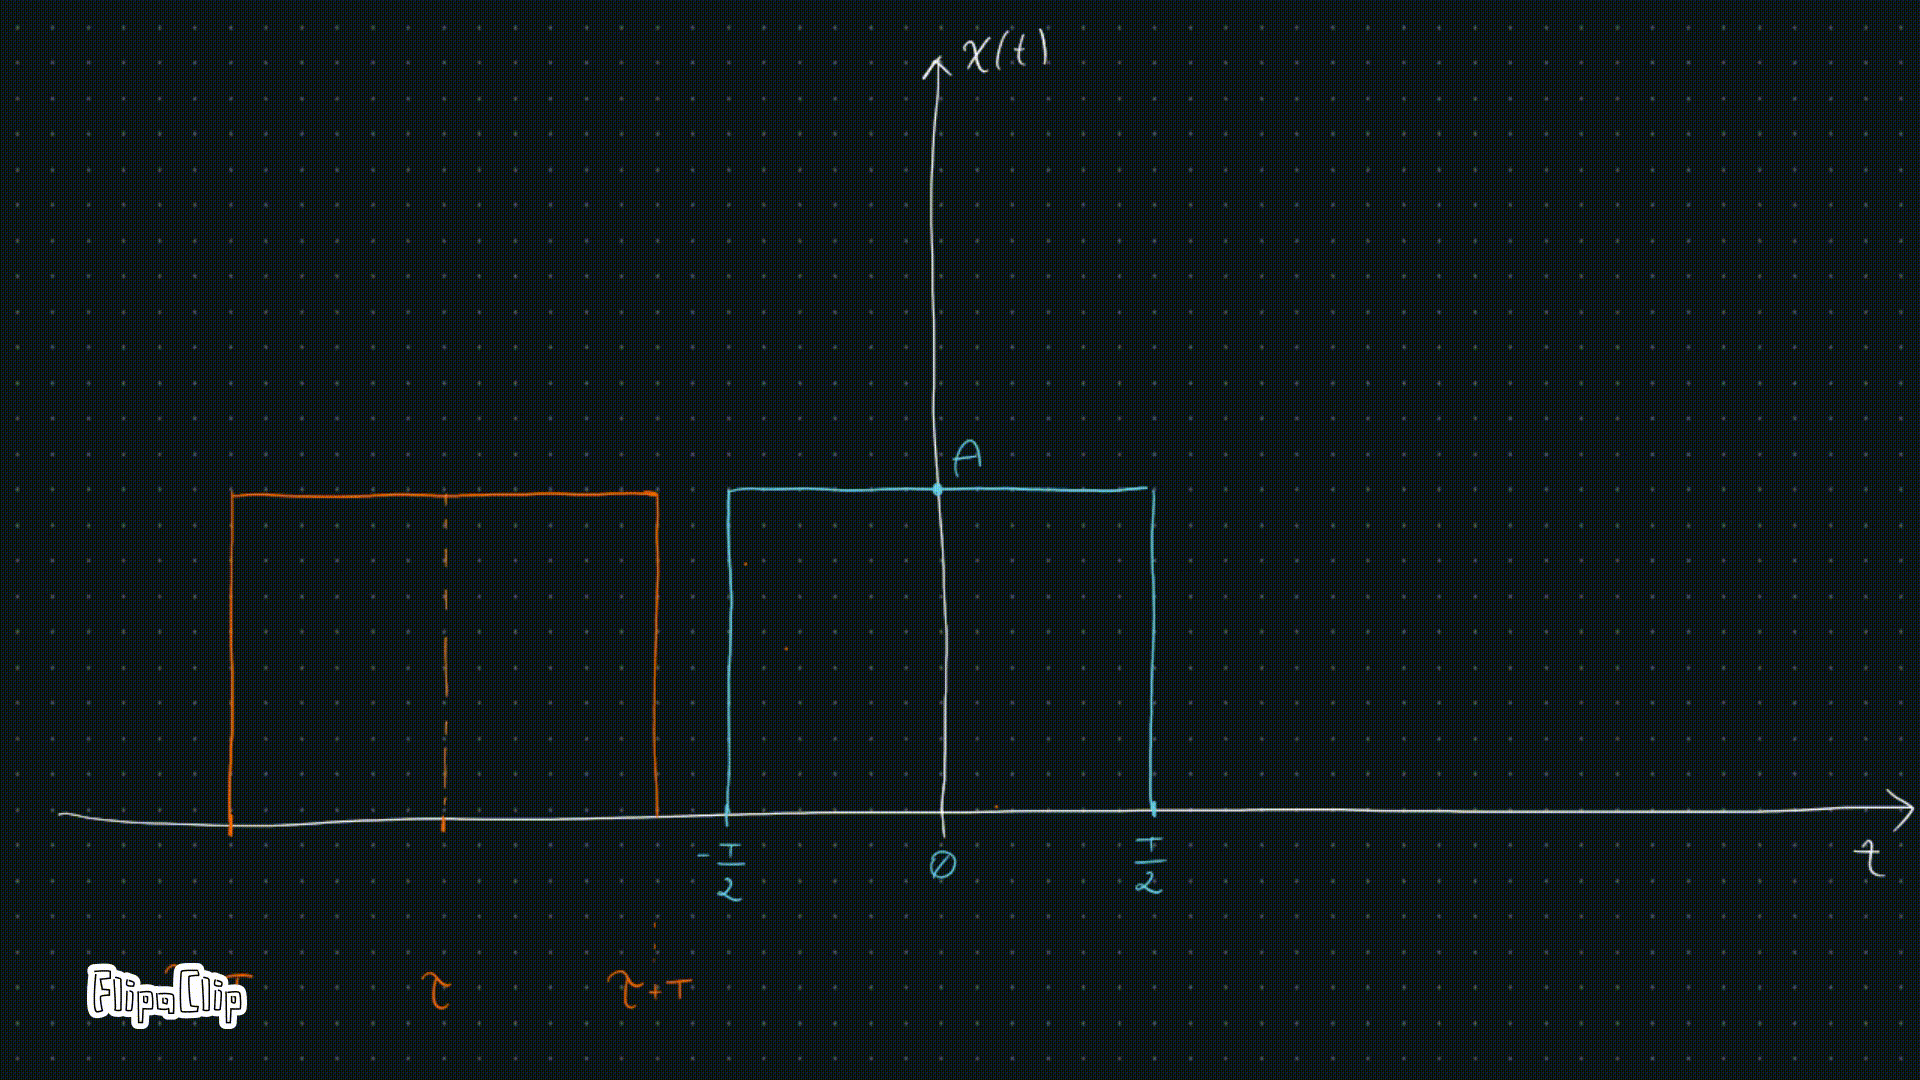 x(t)
A
-T/2 0 T/2
t
τ τ+T
FlipaClip